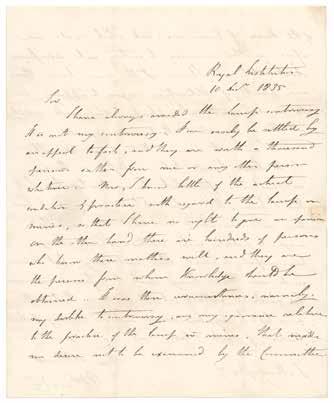 Royal Institution
10 Novr. 1835
Sir
I have always avoided the lamp controversy
It is not my controversy. It can easily be settled by
an appeal to fact, and they are worth a thousand
opinions either from me or any other person
whatever. Now, I know little of the actual
condition & practice with regard to the lamp in
mines, so that I have no right to give an opinion
on the other hand there are hundreds of persons
who know these matters well, and they are
the persons from whom knowledge should be
obtained. It was these circumstances, namely
my dislike to controversy, and my ignorance relative
to the practice of the lamp in mines, that made
me desire not to be examined by the Committee